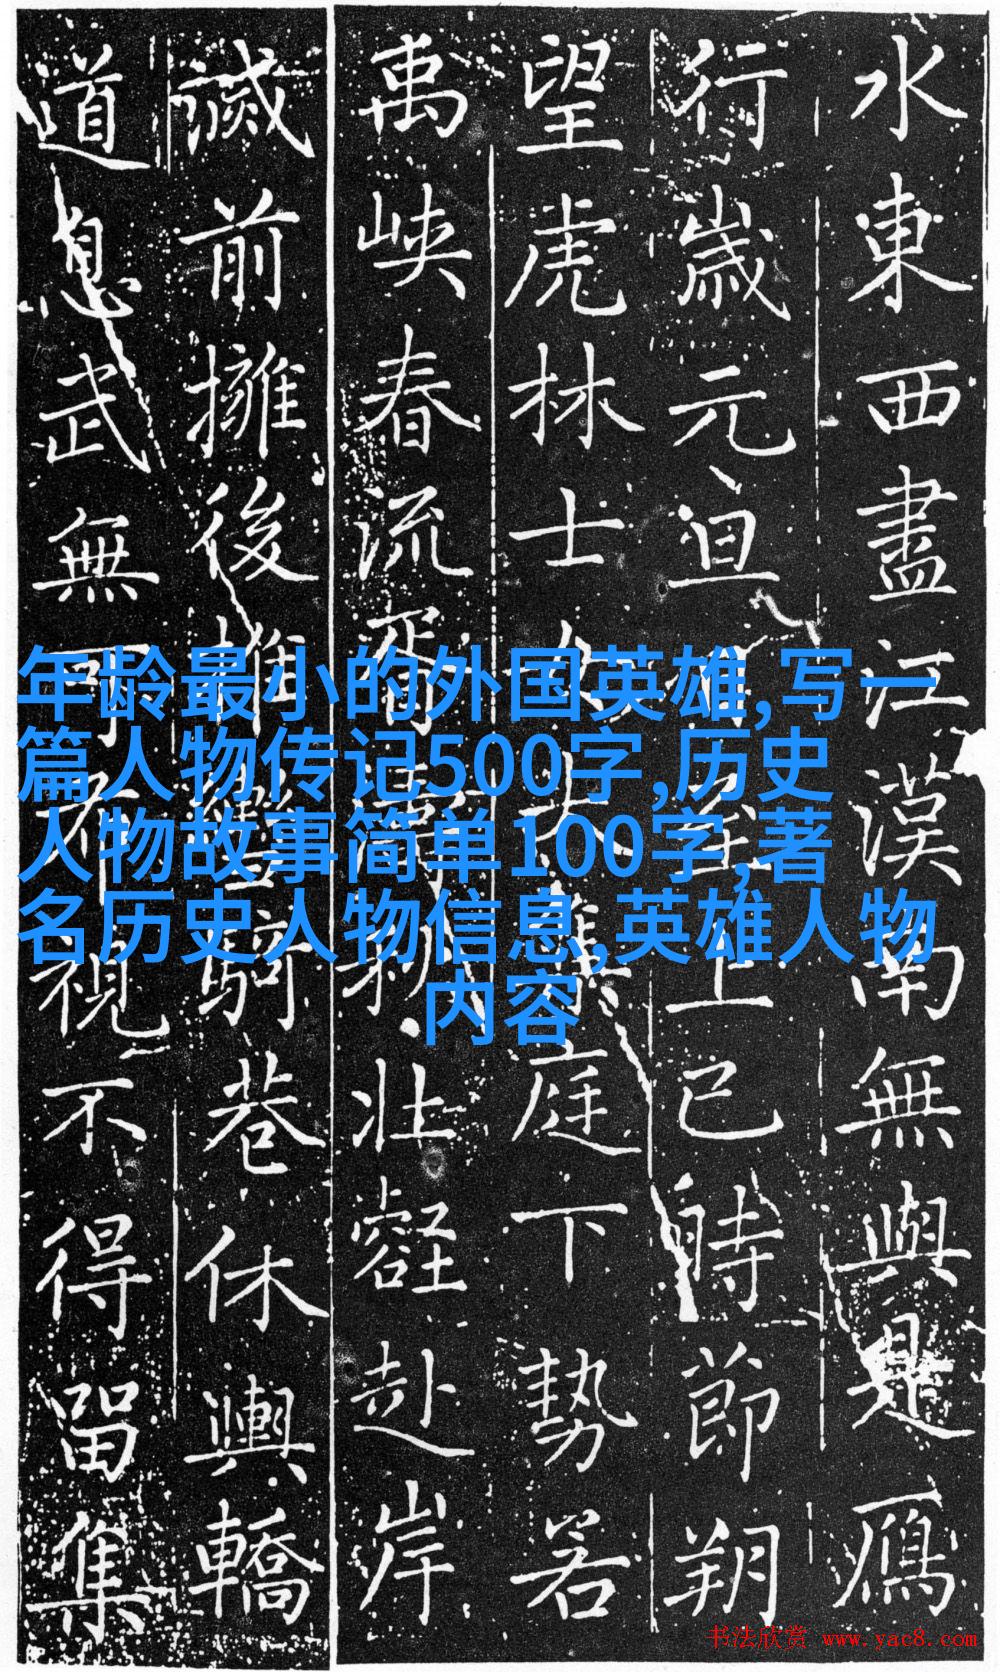 水東西盡江漢南無與是鴈
行歲元旦上巳時節朔
望虎林士女大集庭下勢若
禹峽春流胥濤壯赴岸
滅前擁後推騎巷休輿轎
道息武無可不視不得留集
年龄最小的外国英雄,写一
篇人物传记500字,历史
人物故事简单100字,著
名历史人物信息,英雄人物
内容
书法欣赏 www.yac8.com